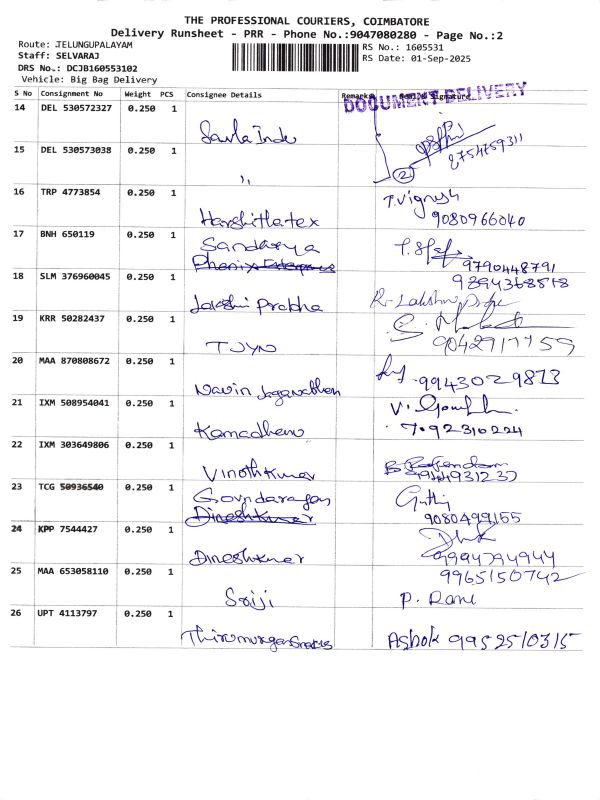 THE PROFESSIONAL COURIERS, COIMBATORE
Delivery Runsheet - PRR - Phone No.:9047080280 - Page No.:2
Route: TELUNGUPALAYAM
Staff: SELVARAJ
DRS No.: DCJB160553102
Vehicle: Big Bag Delivery
RS No.: 1605531
RS Date: 01-Sep-2025
S No Consignment No Weight PCS Consignee Details Remarks Signature
DOCUMENT DELIVERY
14 DEL 530572327 0.250 1
8754759311
15 DEL 530573038 0.250 1 ,, 2
16 TRP 4773854 0.250 1 Harshitha tex T. Vignesh
9080966040
17 BNH 650119 0.250 1 Sandhya
Phenix Enterprises
9790448791
18 SLM 376960045 0.250 1 Lakshmi Prabha
9894368518
19 KRR 50282437 0.250 1 TJYN
9042917759
20 MAA 870808672 0.250 1 Navin Jaganathan 9943029873
21 IXM 508954041 0.250 1 Kamadhenu
22 IXM 303649806 0.250 1 Vinothkumar B Rajendran
23 TCG 50936540 0.250 1 Govndarajan
Dineshkumar
9080499155
24 KPP 7544427 0.250 1 Dineshkumar
9994794944
25 MAA 653058110 0.250 1 Sriji
9965150742
P. Rani
26 UPT 4113797 0.250 1 Thirumurgan Snacks Ashok 9952510315